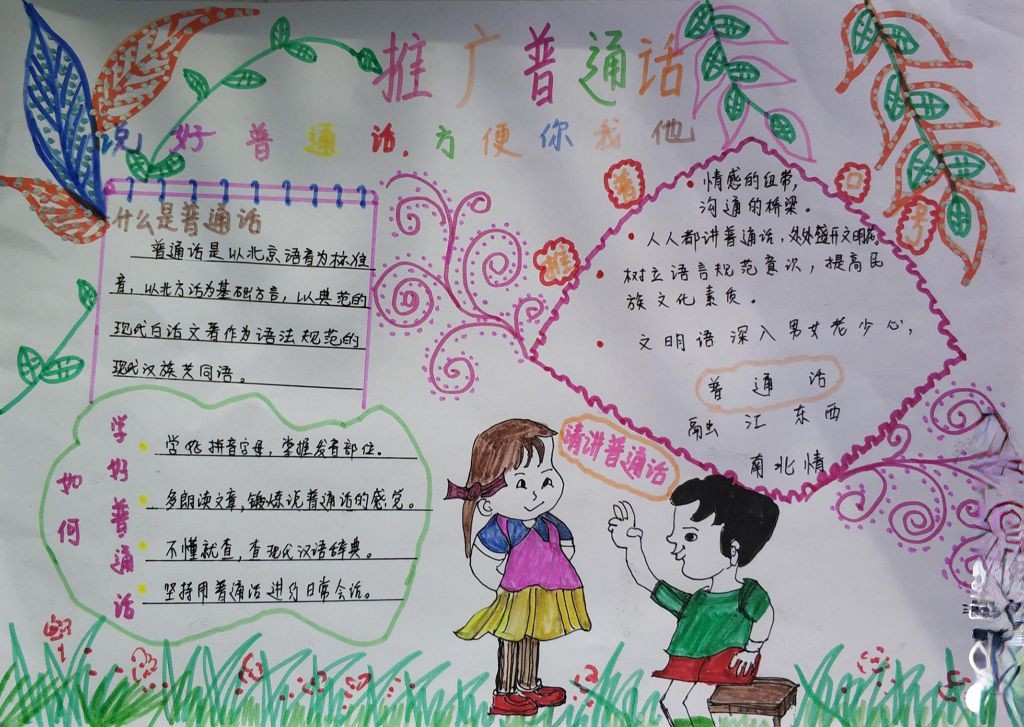 推广普通话
说好普通话,方便你我他
什么是普通话
普通话是以北京语音为标准
音，以北方话为基础方言，以典范的
现代白话文著作为语法规范的
现代汉族共同语。
如何
学好普通话
学好拼音字母，掌握发音部位。
多朗读文章，锻炼说普通话的感觉。
不懂就查，查现代汉语辞典。
坚持用普通话进行日常会话。
推
口
号
情感的纽带，
沟通的桥梁。
人人都讲普通话，处处盛开文明花
树立语言规范意识，提高民
族文化素质。
文明语深入男女老少心，
普通话
融江东西
南北情
请讲普通话